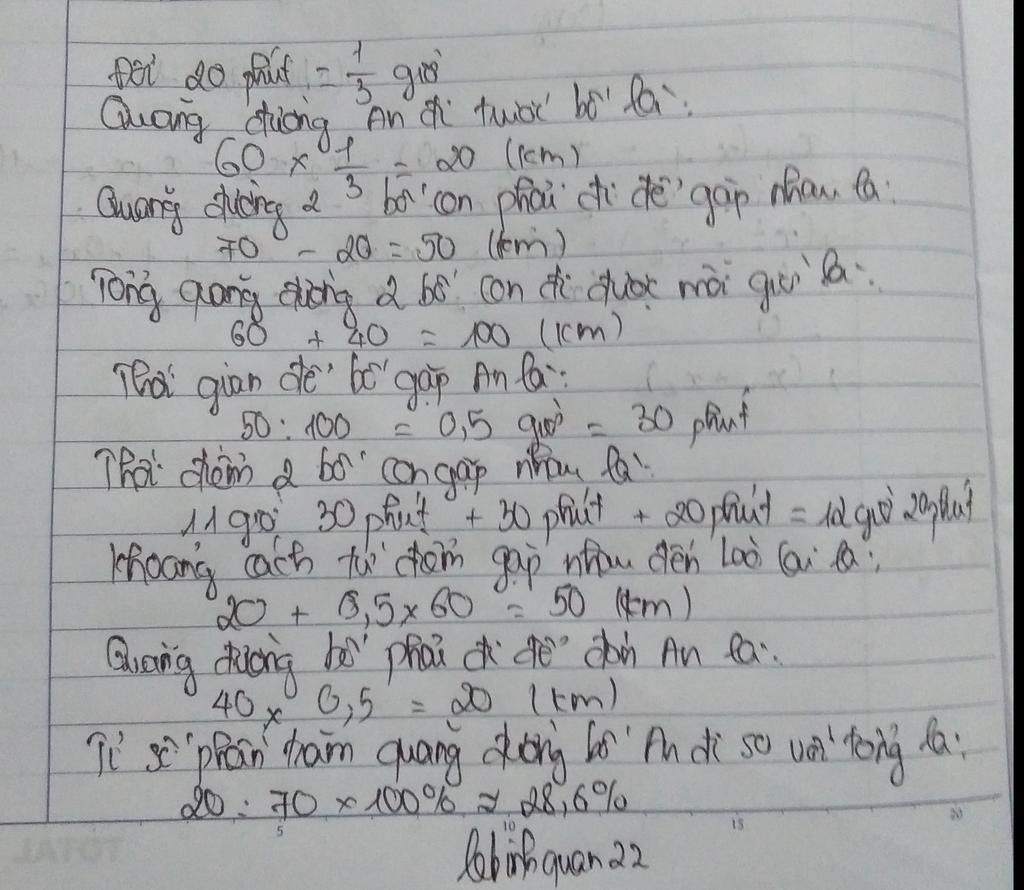 Đổi 20 phút = 1/3 giờ
Quãng đường An đi trước bố là:
60 × 1/3 = 20 (km)
Quãng đường 2 bố con phải đi để gặp nhau là:
70 - 20 = 50 (km)
Tổng quãng đường 2 bố con đi được mỗi giờ là:
60 + 40 = 100 (km)
Thời gian để bố gặp An là:
50 : 100 = 0,5 giờ = 30 phút
Thời điểm 2 bố con gặp nhau là:
11 giờ 30 phút + 30 phút + 20 phút = 12 giờ 20 phút
Khoảng cách từ điểm gặp nhau đến Lào Cai là:
20 + 0,5 × 60 = 50 (km)
Quãng đường bố phải đi để đón An là:
40 × 0,5 = 20 (km)
Tỉ số phần trăm quãng đường bố An đi so với tổng là:
20 : 70 × 100% ≈ 28,6%
TOTAL 5 10 15 20
lebinhquan22